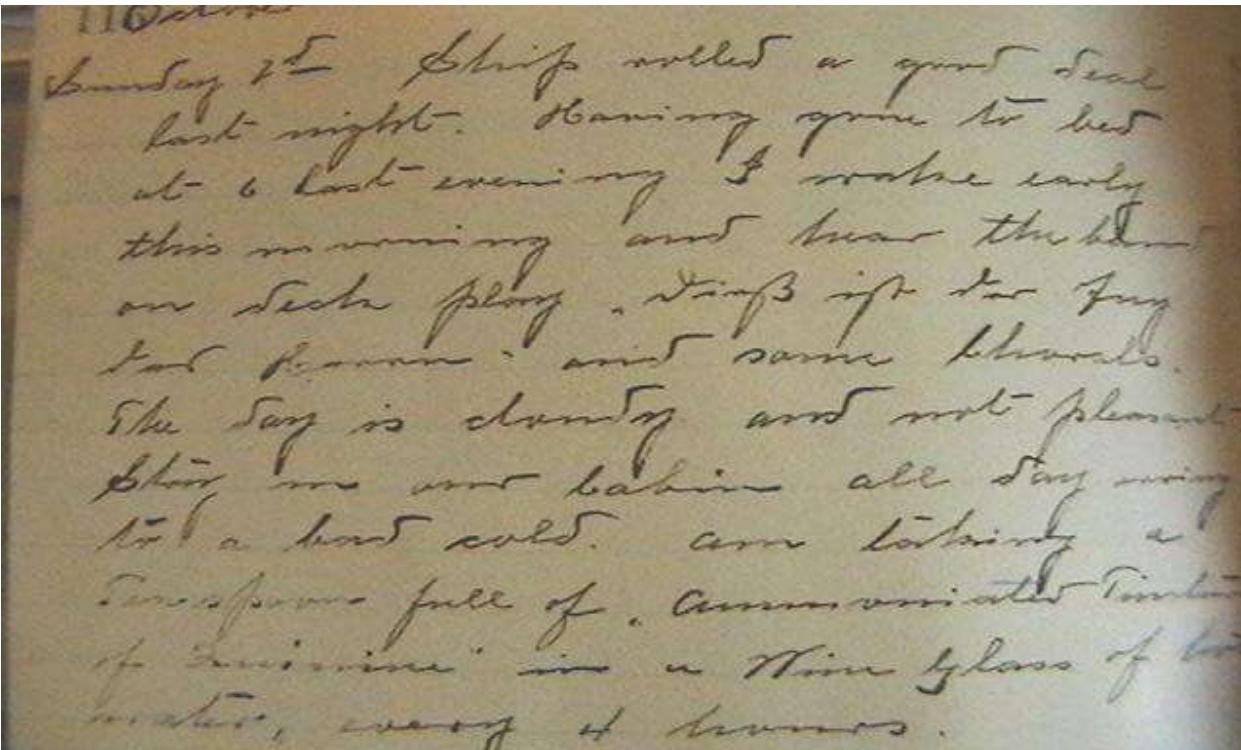 116 October
Sunday 2d Ship rolled a good deal
last night. Having gone to bed
at 6 last evening I wake early
this morning and hear the band
on deck play „Dieß ist der Tag
des Herrn" and some Chorals.
The day is cloudy and not pleasant
Stay in our Cabin all day owing
to a bad cold. am taking a
Teaspoon full of „Ammoniated Tincture
of Quinine" in a Wine Glass of
water, every 4 hours.